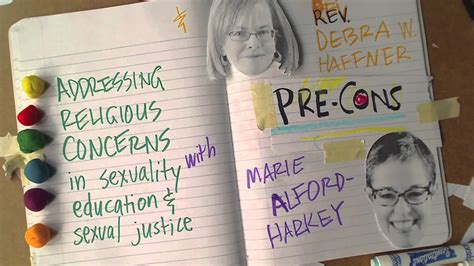 &
ADDRESSING
RELIGIOUS
CONCERNS
in sexuality
education &
sexual justice
with
REV.
DEBRA W.
HAFFNER
PRE-CONS
MARIE
ALFORD-
HARKEY